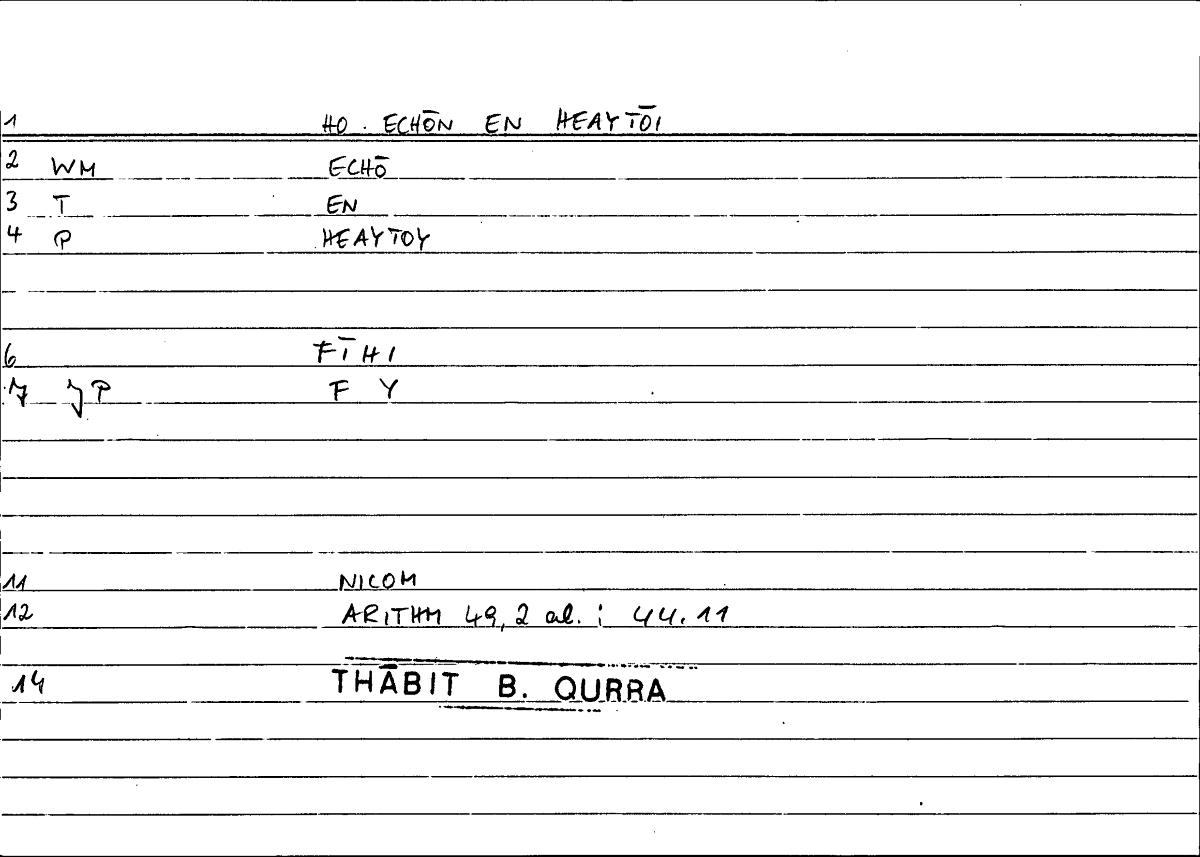 1 HO ECHŌN EN HEAYTŌI
2 WM ECHŌ
3 T EN
4 P HEAYTOY
6 FĪHI
7 JP F Y
11 NICOM
12 ARITHM 49,2 al. : 44.11
14 THĀBIT B. QURRA